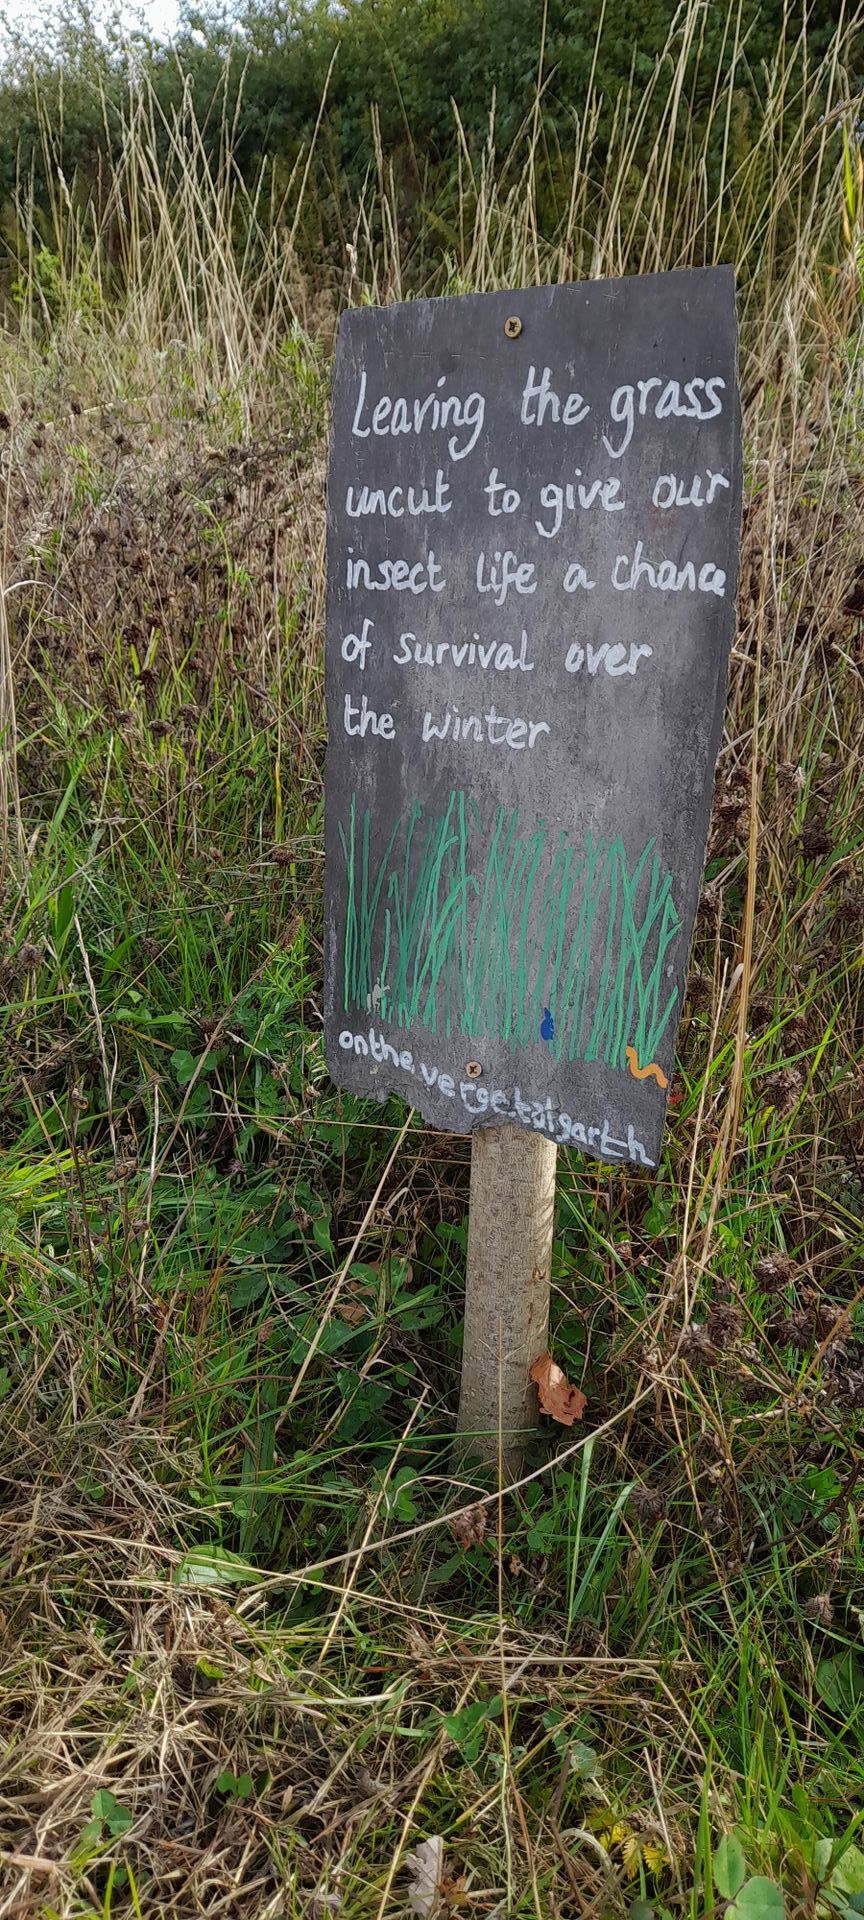 Leaving the grass
uncut to give our
insect life a chance
of survival over
the winter
onthe.vergetalgarth